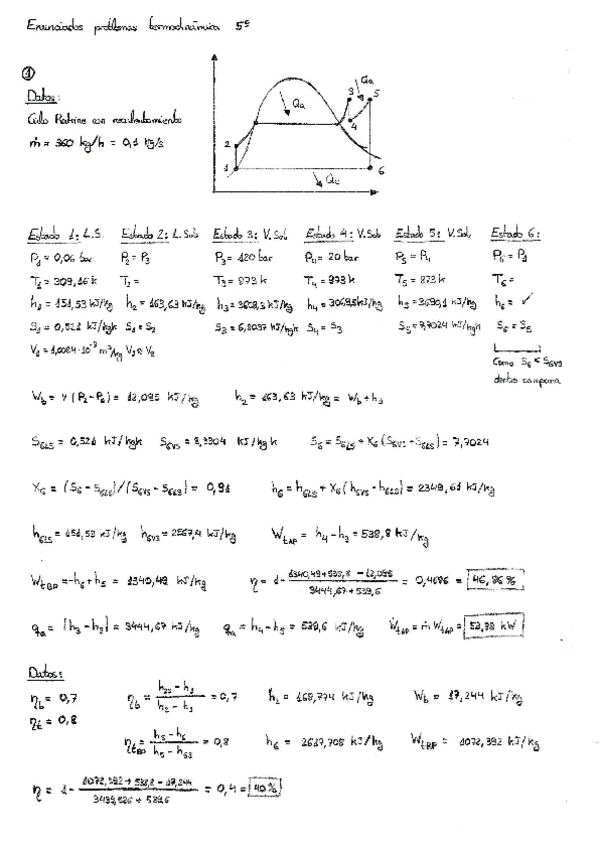 Enunciados problemas termodinámica 5º
①
Datos:
Ciclo Rankine con recalentamiento
ṁ = 360 kg/h = 0,1 kg/s
Qa
Qa
3
5
4
2
1
6
Estado 1: L.S. Estado 2: L.Sub Estado 3: V.Sob Estado 4: V.Sob Estado 5: V.Sob Estado 6:
P1 = 0,06 bar P2 = P3 P3 = 120 bar P4 = 20 bar P5 = P4 P6 = P1
T1 = 309,16 K T2 = T3 = 873 K T5 = 873 K T6 =
h1 = 151,53 kJ/kg h2 = 163,63 kJ/kg h6 = ✓
S1 = 0,521 kJ/kgK S1 = S2 S4 = S3 S5 = 7,7024 kJ/kgK S6 = S5
Como S6 < S6VS
dentro campana
Wb = v (P2-P1) = 12,095 kJ/kg h2 = 163,63 kJ/kg = Wb + h1
S6LS = 0,521 kJ/kgK S6VS = 8,3304 kJ/kgK S6 = S6LS + X6 (S6VS - S6LS) = 7,7024
X6 = (S6 - S6LS)/(S6VS - S6LS) = 0,91 h6 = h6LS + X6 (h6VS - h6LS) = 2349,61 kJ/kg
h6LS = 151,53 kJ/kg h6VS = 2567,4 kJ/kg WtAP = h4 - h3 = 538,8 kJ/kg
WtBP = -h6 + h5 = 1340,49 kJ/kg η = 1- (1340,49+538,8 - 12,095)/(3444,67+539,6) = 0,4686 = 46,86%
qa = |h3 - h2| = 3444,67 kJ/kg qa = h4 - h5 = 539,6 kJ/kg ẆtAP = ṁ WtAP = 53,88 kW
Datos:
ηb = 0,7 ηb = (h2s - h1)/(h2 - h1) = 0,7 h2 = 168,774 kJ/kg Wb = 17,244 kJ/kg
ηt = 0,8
ηtBP = (h5 - h6)/(h5 - h6s) = 0,8 h6 = 2617,708 kJ/kg WtBP = 1072,392 kJ/kg
η = 1- (1072,392 + 538,8 - 17,244)/(3439,526 + 539,6) = 0,4 = 40%